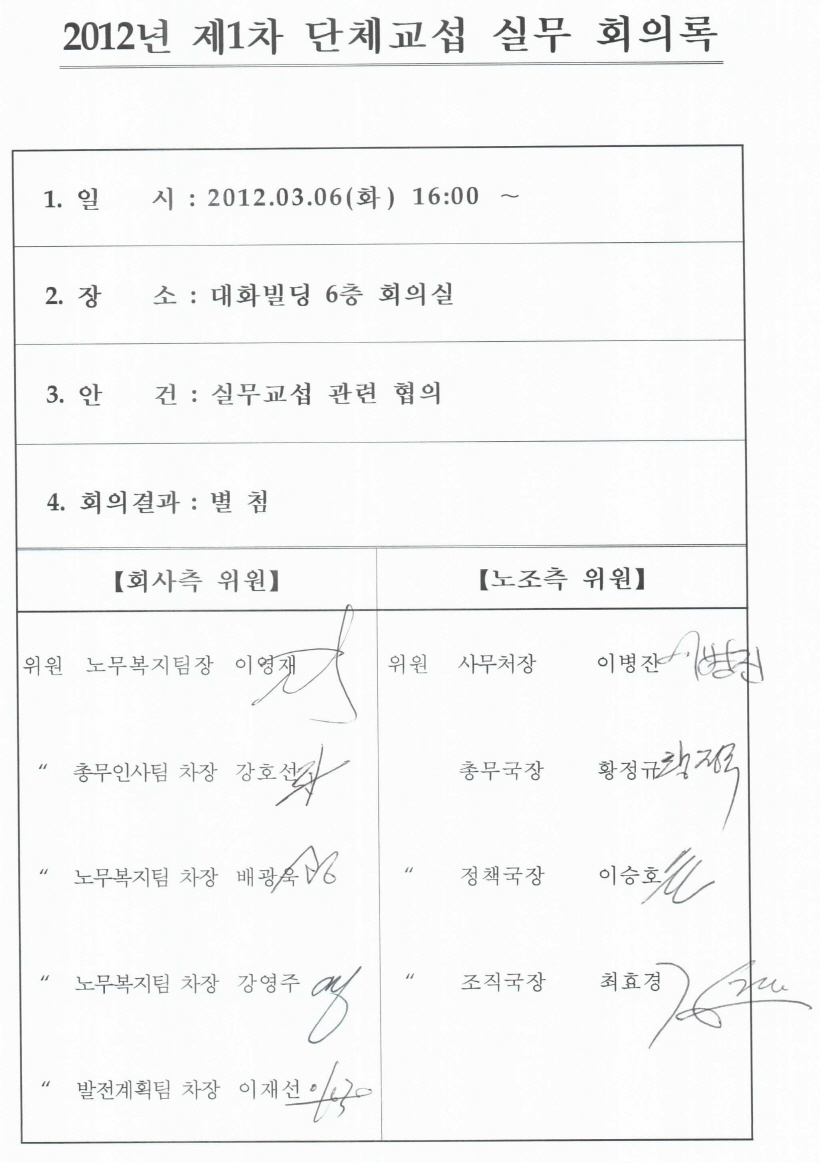 2012년 제1차 단체교섭 실무 회의록
1. 일 시 : 2012.03.06(화) 16:00 ~
2. 장 소 : 대화빌딩 6층 회의실
3. 안 건 : 실무교섭 관련 협의
4. 회의결과 : 별 첨
【회사측 위원】 【노조측 위원】
위원 노무복지팀장 이영재 위원 사무처장 이병잔 이병진
〃 총무인사팀 차장 강호선 총무국장 황정규 황정규
〃 노무복지팀 차장 배광욱 〃 정책국장 이승호
〃 노무복지팀 차장 강영주 〃 조직국장 최효경
〃 발전계획팀 차장 이재선